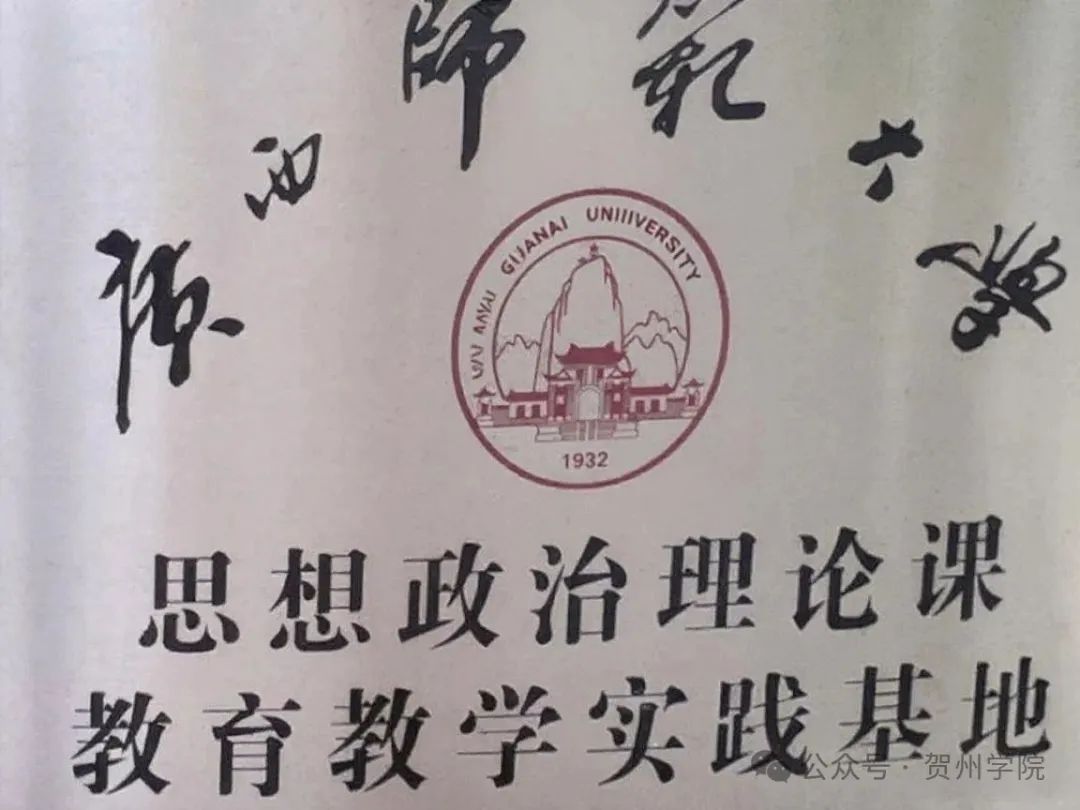 西師
GIJANAI UNIIIVERSITY
1932
思想政治理论课
教育教学实践基地
公众号·贺州学院